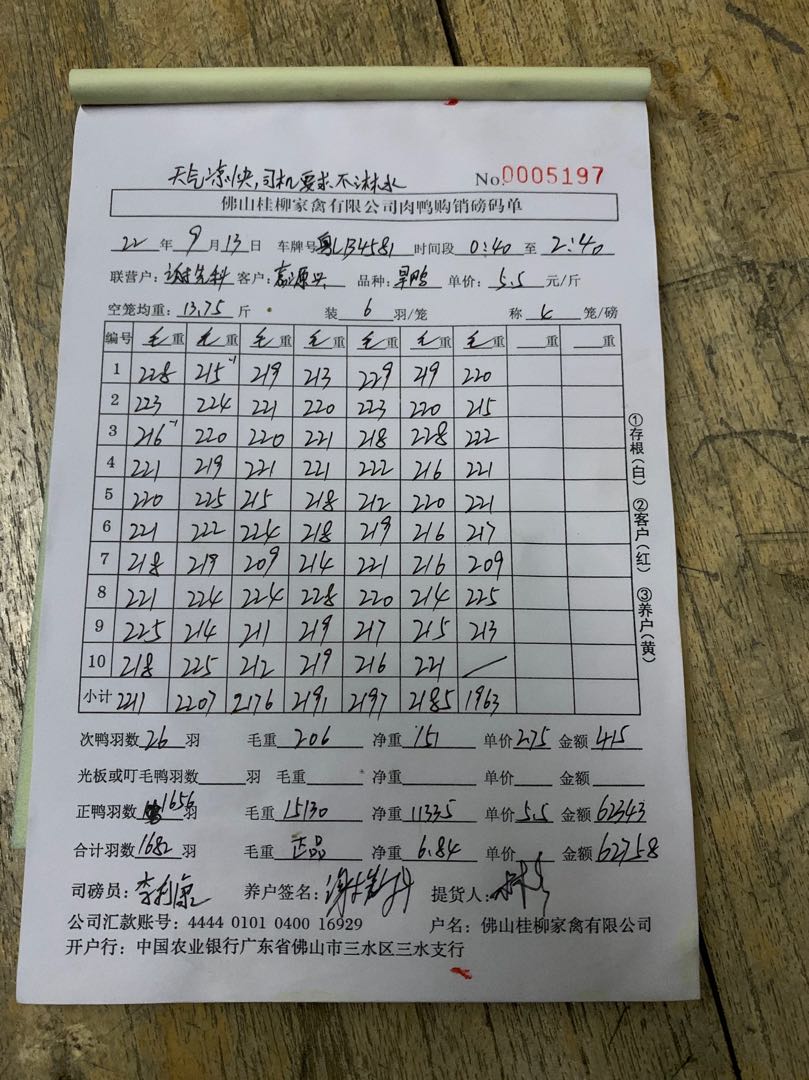 天气凉快,司机要求不淋水
No.0005197
佛山桂柳家禽有限公司肉鸭购销磅码单
22年9月13日 车牌号粤LB4581 时间段0:40至2:40
联营户: 客户:源兴 品种:旱鸭 单价:5.5元/斤
空笼均重:13.75斤 装6羽/笼 称4笼/磅
编号 毛重 毛重 毛重 毛重 毛重 毛重 毛重 重 重
1 228 215-1 219 213 229 219 220
2 223 224 221 220 223 220 215
3 216-1 220 220 221 218 228 222
4 221 219 221 221 222 216 221
5 220 225 215 218 212 220 221
6 221 222 224 218 219 216 217
7 218 219 209 214 221 216 209
8 221 224 224 228 220 214 225
9 225 214 211 219 217 215 213
10 218 225 212 219 216 221 /
小计 2211 2207 2176 2191 2197 2185 1963
次鸭羽数26羽 毛重206 净重151 单价2.75 金额415
光板或叮毛鸭羽数 羽 毛重 净重 单价 金额
正鸭羽数1656羽 毛重15130 净重11335 单价5.5 金额62343
合计羽数1682羽 毛重正品 净重6.84 单价 金额62758
司磅员:李利 养户签名: 提货人:
公司汇款账号:4444 0101 0400 16929 户名:佛山桂柳家禽有限公司
开户行:中国农业银行广东省佛山市三水区三水支行
①存根(白) ②客户(红) ③养户(黄)